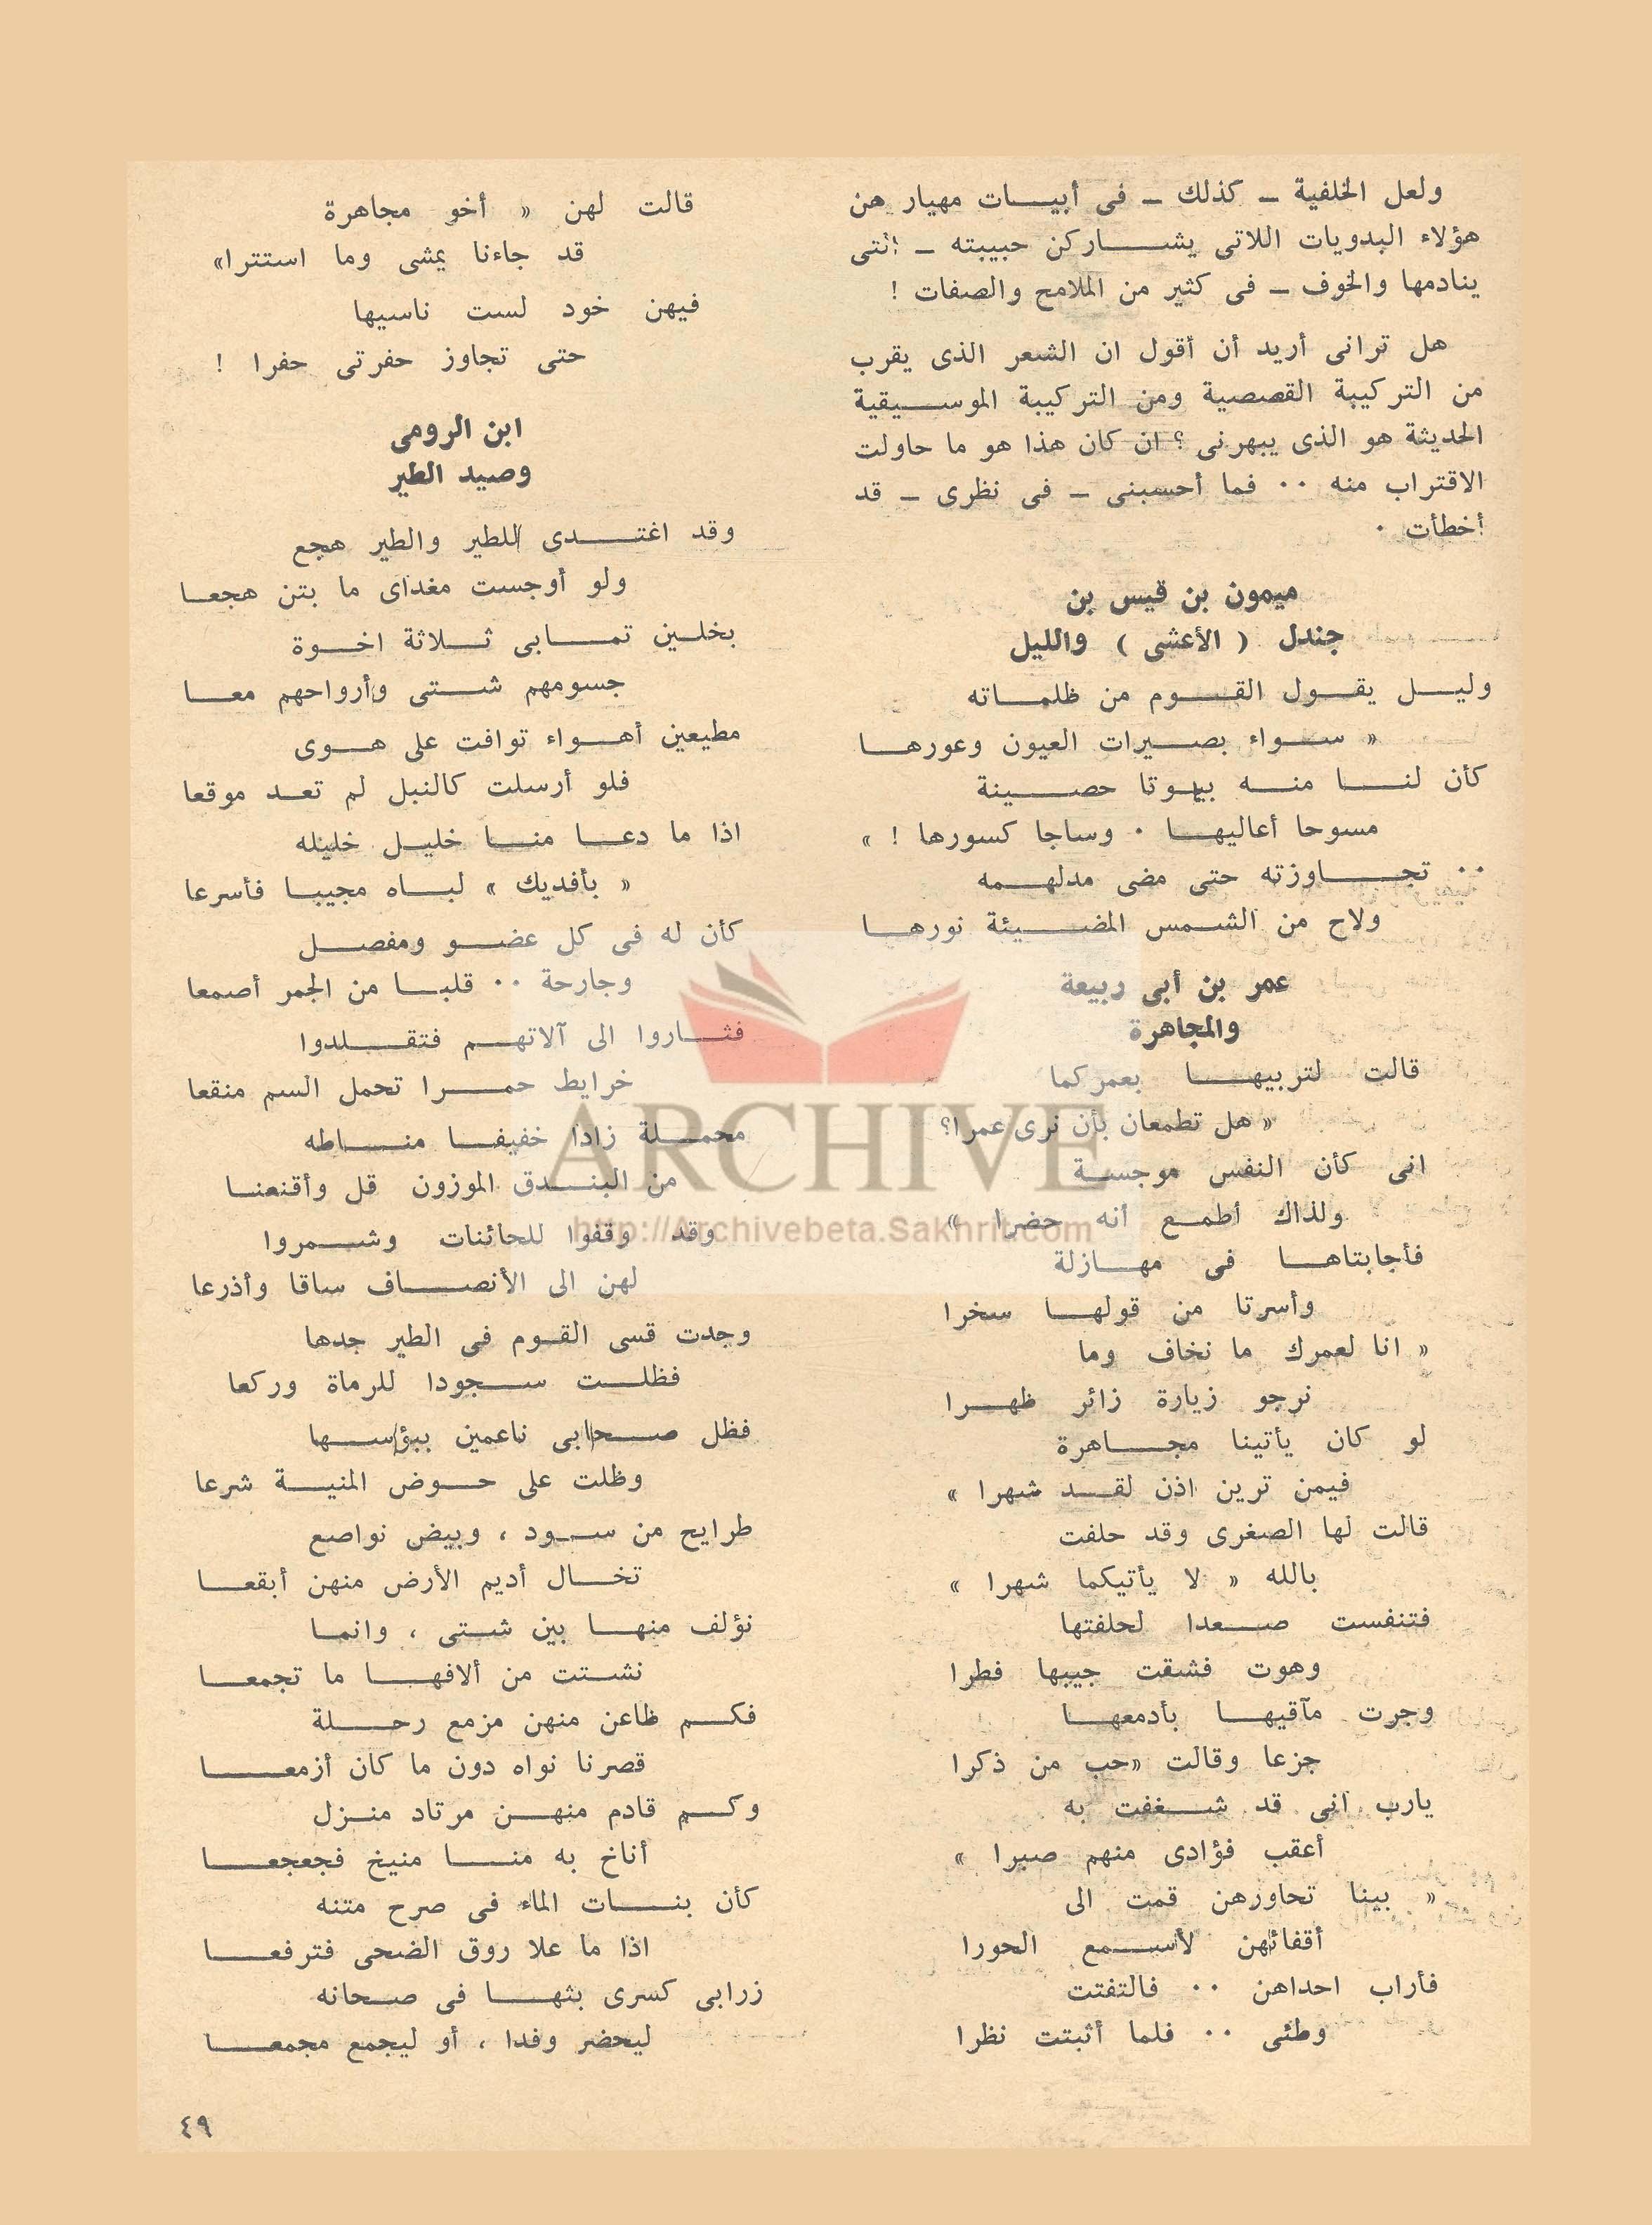 ولعل الخلفية ـ كذلك ـ فى أبيات مهيار هن
هؤلاء البدويات اللاتى يشاركن حبيبته ـ التى
ينادمها والخوف ـ فى كثير من الملامح والصفات !
هل ترانى أريد أن أقول ان الشعر الذى يقرب
من التركيبة القصصية ومن التركيبة الموسيقية
الحديثة هو الذى يبهرنى ؟ ان كان هذا هو ما حاولت
الاقتراب منه ٠٠ فما أحسبنى ـ فى نظرى ـ قد
أخطأت ٠
ميمون بن قيس بن
جندل ( الأعشى ) والليل
وليل يقول القوم من ظلماته
« سواء بصيرات العيون وعورها
كأن لنا منه بيوتا حصينة
مسوحا أعاليها ٠ وساجا كسورها ! »
٠٠ تجاوزته حتى مضى مدلهمه
ولاح من الشمس المضيئة نورها
عمر بن أبى ربيعة
والمجاهرة
قالت لتربيها بعمركما
« هل تطمعان بأن نرى عمرا؟
انى كأن النفس موجسة
ولذاك أطمع أنه حضرا »
فأجابتاها فى مهازلة
وأسرتا من قولها سخرا
« انا لعمرك ما نخاف وما
نرجو زيارة زائر ظهرا
لو كان يأتينا مجاهرة
فيمن ترين اذن لقد شهرا »
قالت لها الصغرى وقد حلفت
بالله « لا يأتيكما شهرا »
فتنفست صعدا لحلفتها
وهوت فشقت جيبها فطرا
وجرت مآقيها بأدمعها
جزعا وقالت «حب من ذكرا
يارب انى قد شغفت به
أعقب فؤادى منهم صبرا »
« بينا تحاورهن قمت الى
أقفائهن لأسمع الحورا
فأراب احداهن ٠٠ فالتفتت
وطئى ٠٠ فلما أثبتت نظرا
قالت لهن « أخو مجاهرة
قد جاءنا يمشى وما استترا»
فيهن خود لست ناسيها
حتى تجاوز حفرتى حفرا !
ابن الرومى
وصيد الطير
وقد اغتدى للطير والطير هجع
ولو أوجست مغداى ما بتن هجعا
بخلين تمابى ثلاثة اخوة
جسومهم شتى وأرواحهم معا
مطيعين أهواء توافت على هوى
فلو أرسلت كالنبل لم تعد موقعا
اذا ما دعا منا خليل خليله
« بأفديك » لباه مجيبا فأسرعا
كأن له فى كل عضو ومفصل
وجارحة ٠٠ قلبا من الجمر أصمعا
فثاروا الى آلاتهم فتقلدوا
خرايط حمرا تحمل السم منقعا
محملة زادا خفيفا مناطه
من البندق الموزون قل وأقنعنا
وقد وقفوا للحائنات وشمروا
لهن الى الأنصاف ساقا وأذرعا
وجدت قسى القوم فى الطير جدها
فظلت سجودا للرماة وركعا
فظل صحابى ناعمين ببؤسها
وظلت على حوض المنية شرعا
طرايح من سود ، وبيض نواصع
تخال أديم الأرض منهن أبقعا
نؤلف منها بين شتى ، وانما
نشتت من ألافها ما تجمعا
فكم ظاعن منهن مزمع رحلة
قصرنا نواه دون ما كان أزمعا
وكم قادم منهن مرتاد منزل
أناخ به منا منيخ فجعجعا
كأن بنات الماء فى صرح متنه
اذا ما علا روق الضحى فترفعا
زرابى كسرى بثها فى صحانه
ليحضر وفدا ، أو ليجمع مجمعا
٤٩
ARCHIVE
http://Archivebeta.Sakhrit.com